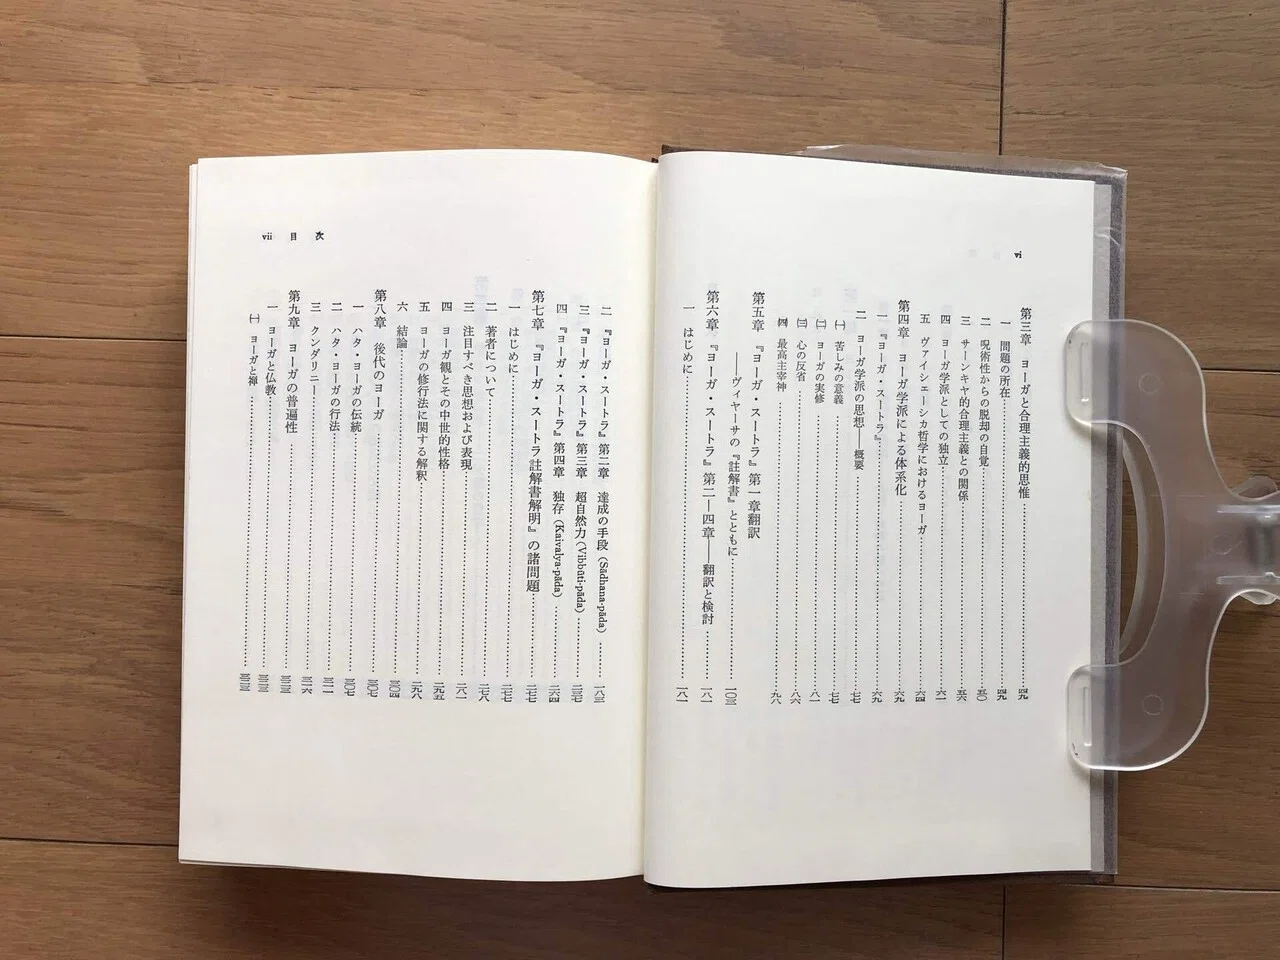 vi
第三章 ヨーガと合理主義的思惟……四九
一 問題の所在……四九
二 呪術性からの脱却の自覚……五〇
三 サーンキヤ的合理主義との関係……五六
四 ヨーガ学派としての独立……六一
五 ヴァイシェーシカ哲学におけるヨーガ……六四
第四章 ヨーガ学派による体系化……六九
一 『ヨーガ・スートラ』……六九
二 ヨーガ学派の思想――概要……七七
㈠ 苦しみの意義……七七
㈡ ヨーガの実修……八一
㈢ 心の反省……八六
㈣ 最高主宰神……九八
第五章 『ヨーガ・スートラ』第一章翻訳
――ヴィヤーサの『註解書』とともに……一〇三
第六章 『ヨーガ・スートラ』第二―四章――翻訳と検討……一八一
一 はじめに……一八一
vii 目次
二 『ヨーガ・スートラ』第二章 達成の手段(Sādhana-pāda)……一八三
三 『ヨーガ・スートラ』第三章 超自然力(Vibhūti-pāda)……二三七
四 『ヨーガ・スートラ』第四章 独存(Kaivalya-pāda)……二六四
第七章 『ヨーガ・スートラ註解書解明』の諸問題……二七七
一 はじめに……二七七
二 著者について……二七八
三 注目すべき思想および表現……二八一
四 ヨーガ観とその中世的性格……二九五
五 ヨーガの修行法に関する解釈……二九八
六 結論……三〇四
第八章 後代のヨーガ……三〇七
一 ハタ・ヨーガの伝統……三〇七
二 ハタ・ヨーガの行法……三一一
三 クンダリニー……三一六
第九章 ヨーガの普遍性
一 ヨーガと仏教
㈠ ヨーガと禅